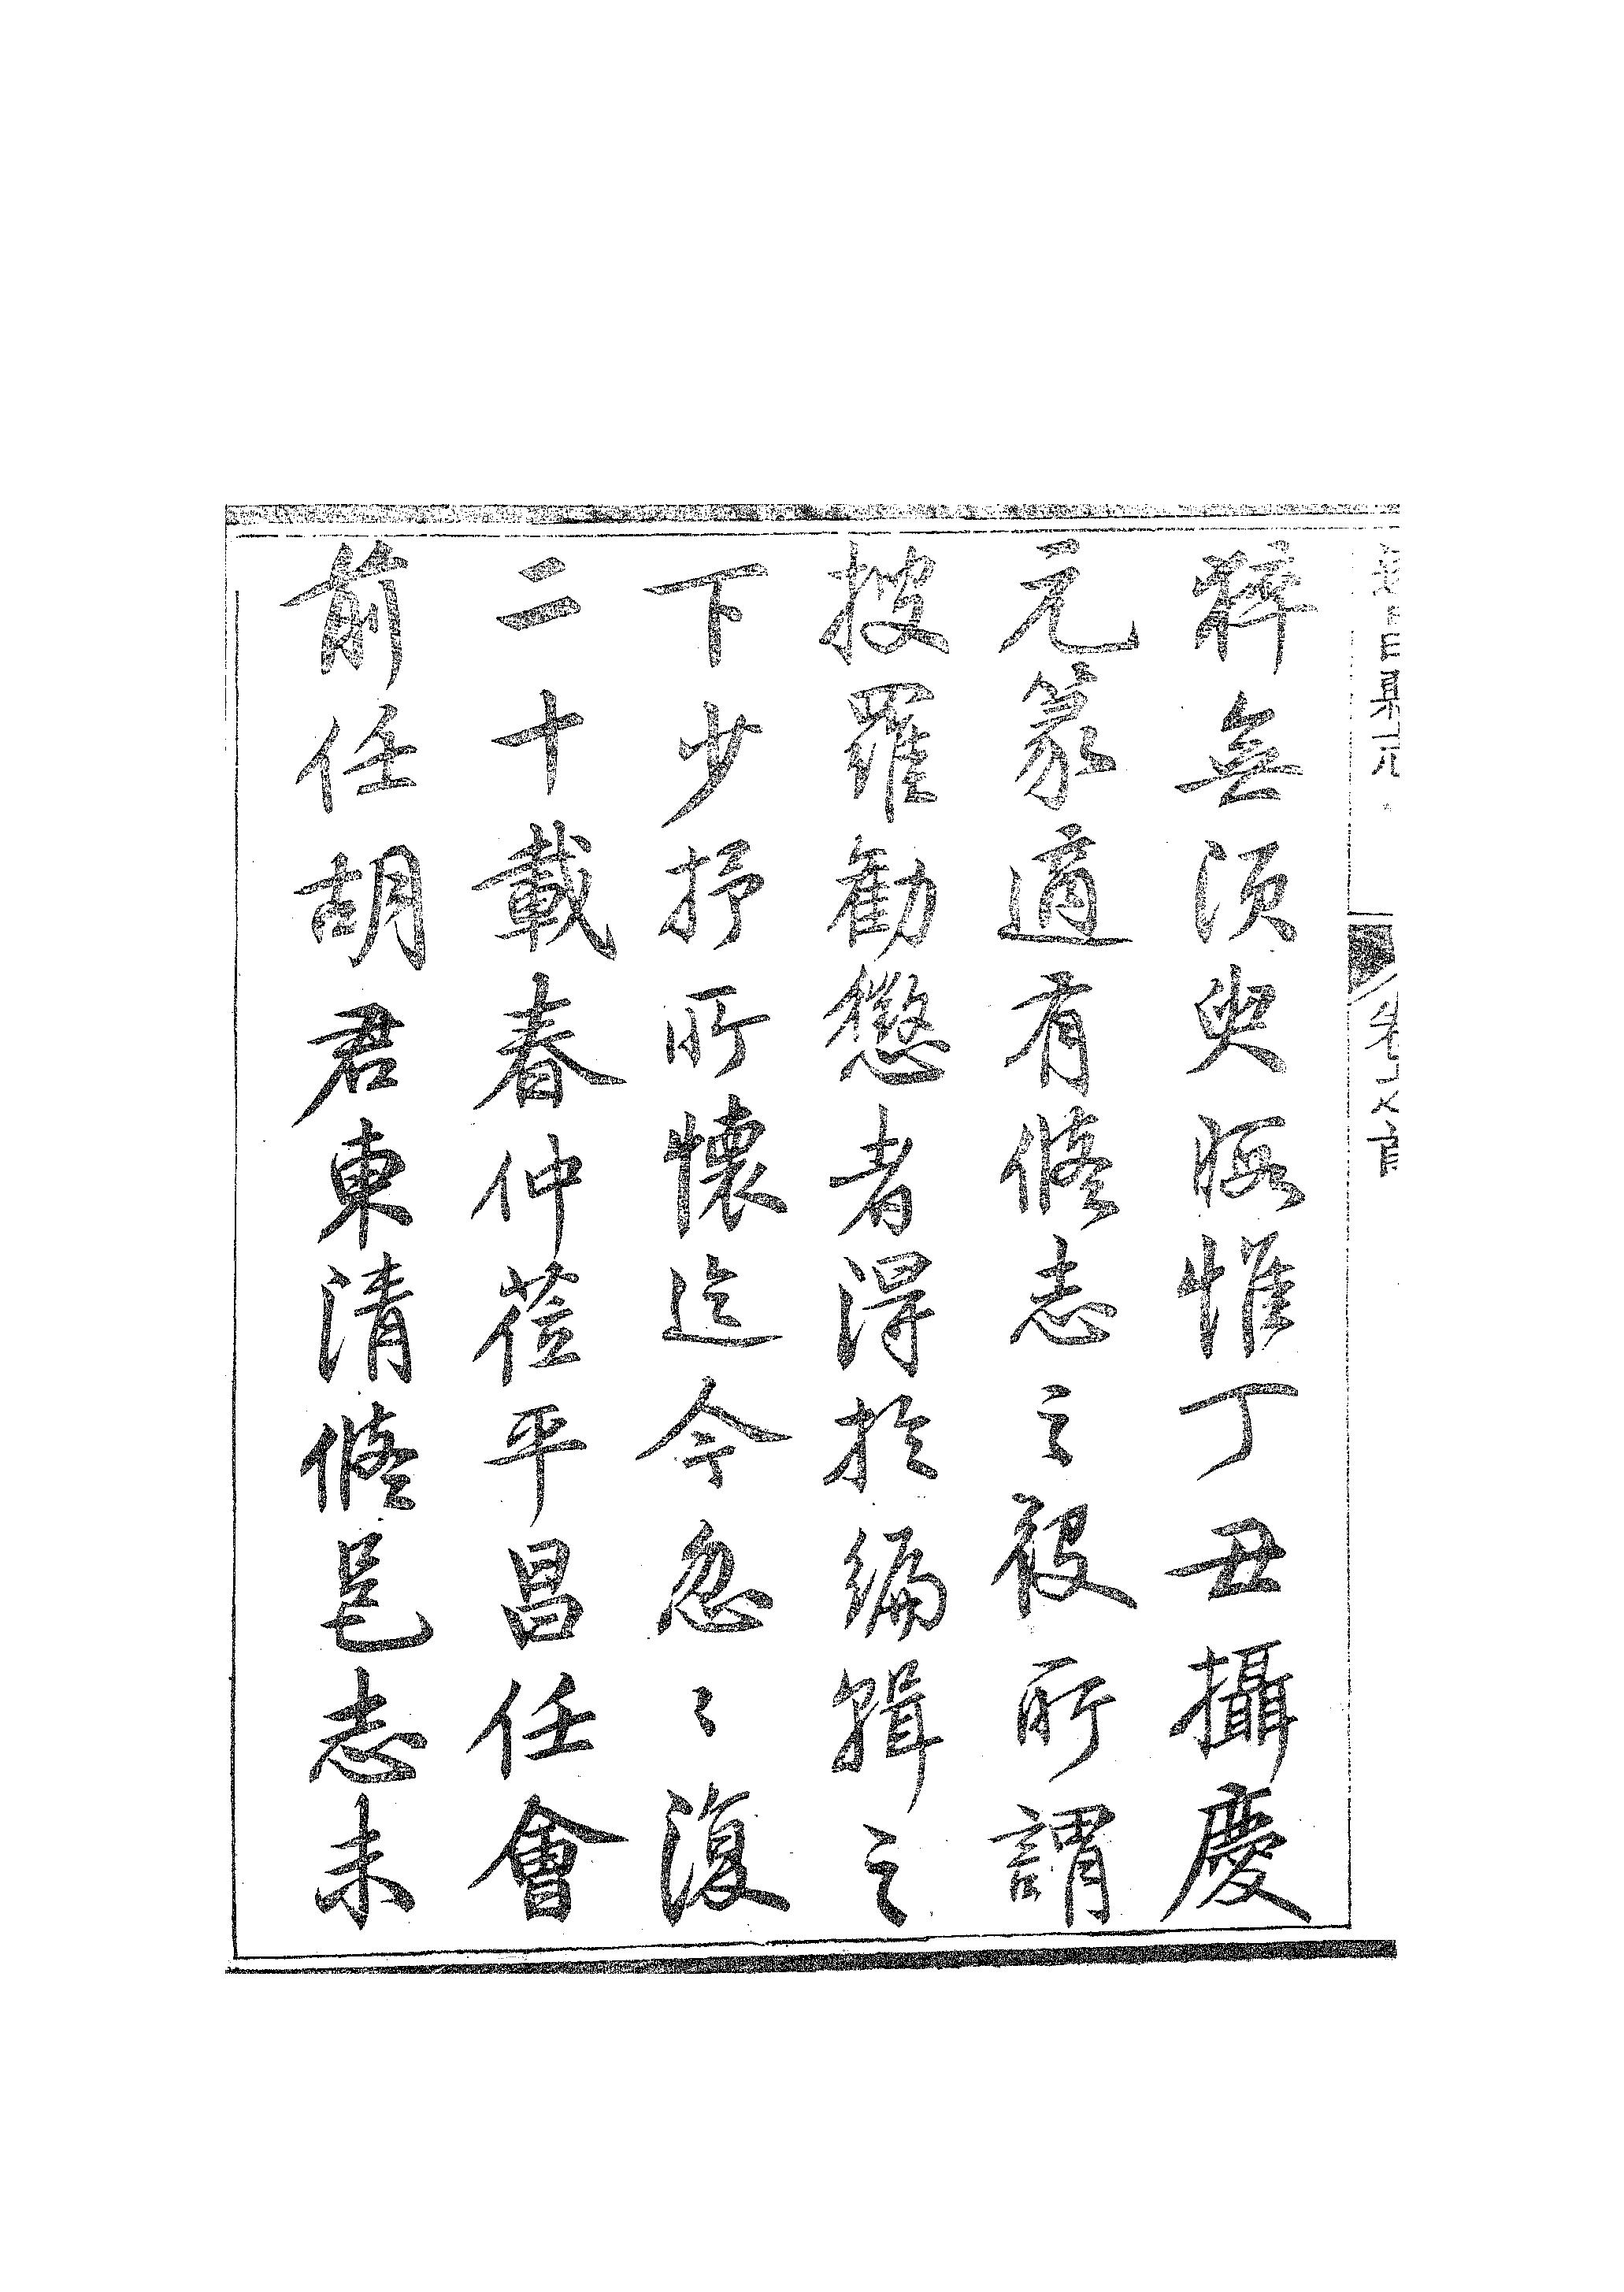 粹無須臾暇惟丁丑攝慶
元篆適有脩志之役所謂
搜羅勸懲者得於編輯之
下少抒所懷迄今忽〻復
二十載春仲莅平昌任會
前任胡君東清脩邑志未